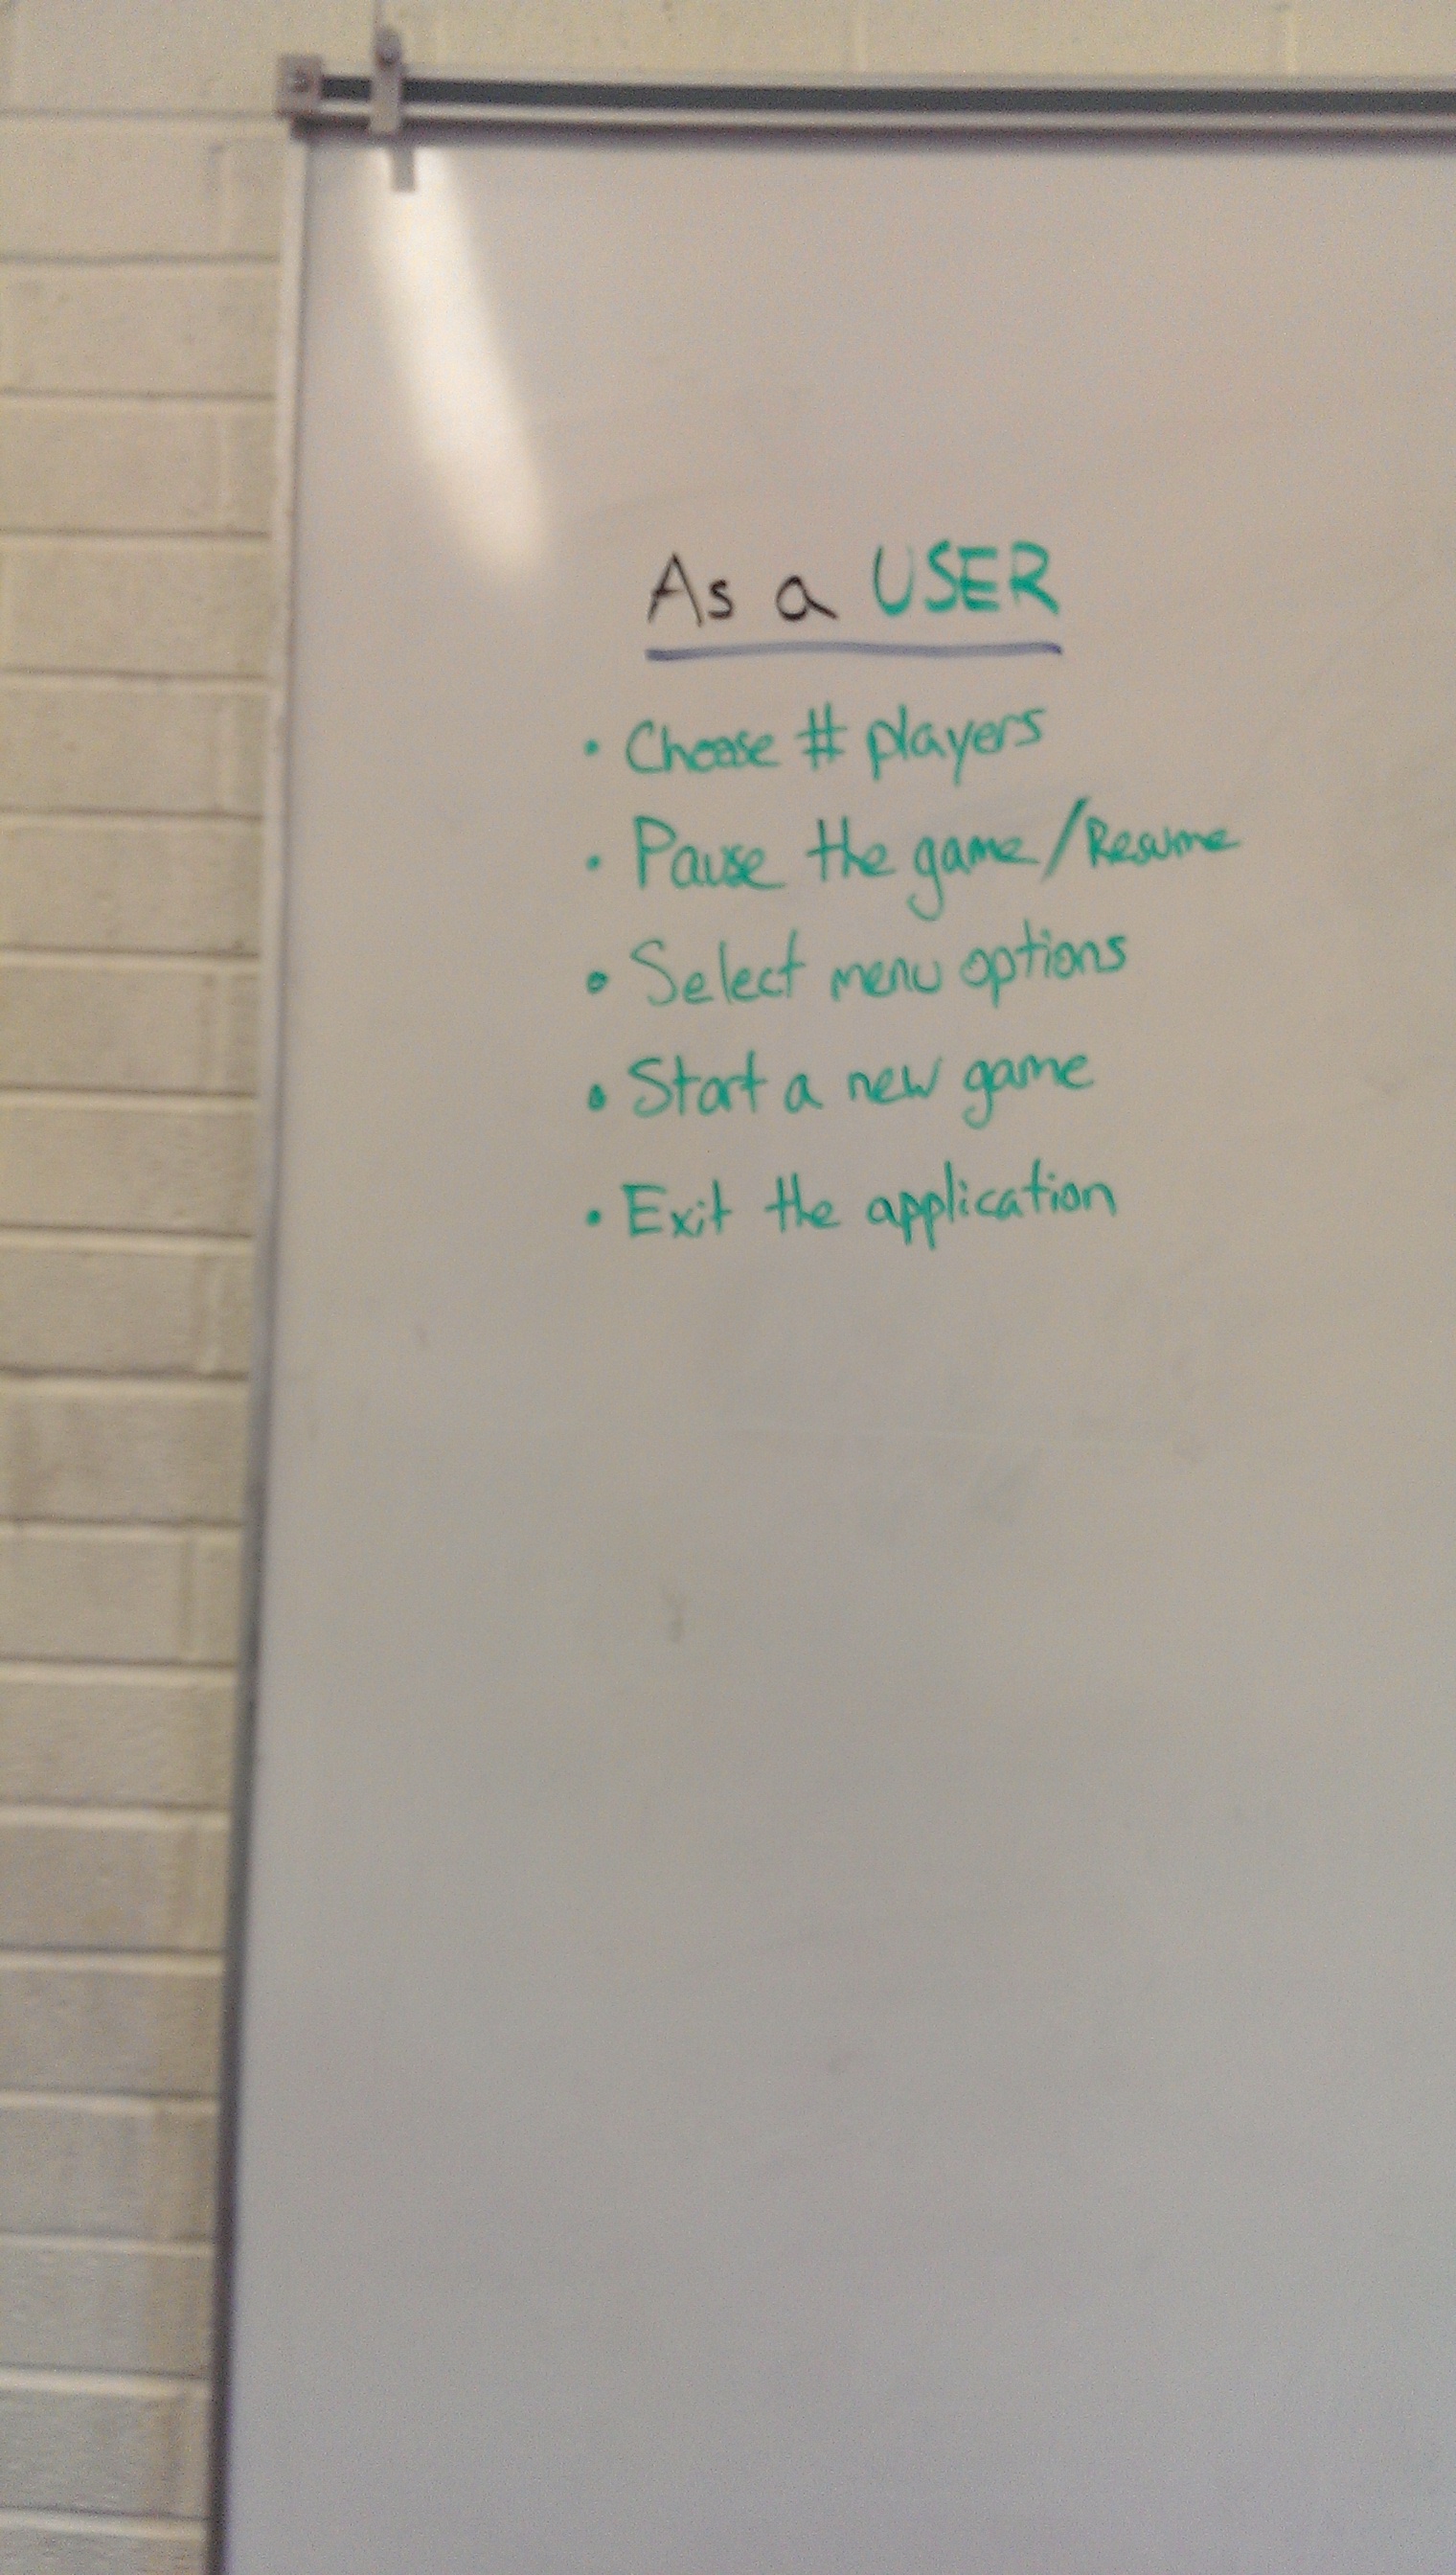 As a USER
• Choose # players
• Pause the game/Resume
• Select menu options
• Start a new game
• Exit the application